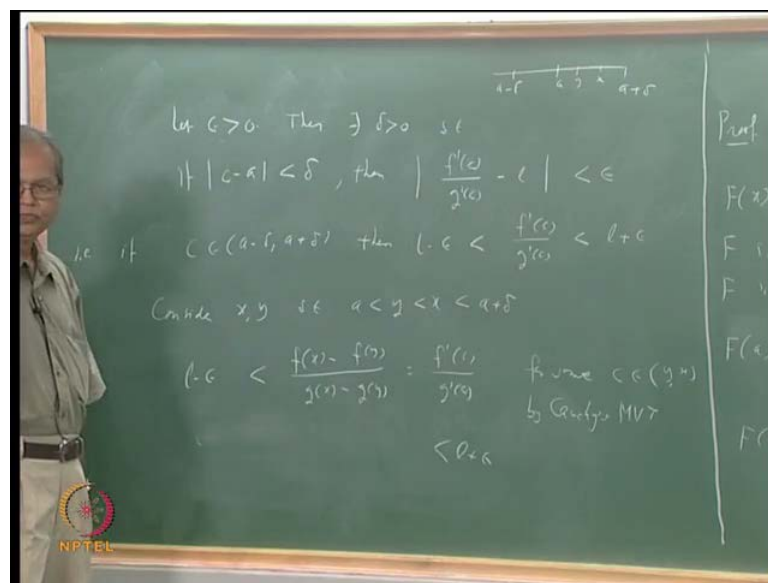 a-δ a y x a+δ
Let ϵ>0. Then ∃ δ>0 st
if |c-a| < δ, then | f'(c)/g'(c) - l | < ϵ
i.e if c ∈ (a-δ, a+δ) then l-ϵ < f'(c)/g'(c) < l+ϵ
Consider x,y st a < y < x < a+δ
l-ϵ < f(x)-f(y)/g(x)-g(y) = f'(c)/g'(c) for some c ∈ (y,x)
by Cauchy's MVT
< l+ϵ
Proof
F(x)
F i
F i
F(a,
F(
NPTEL